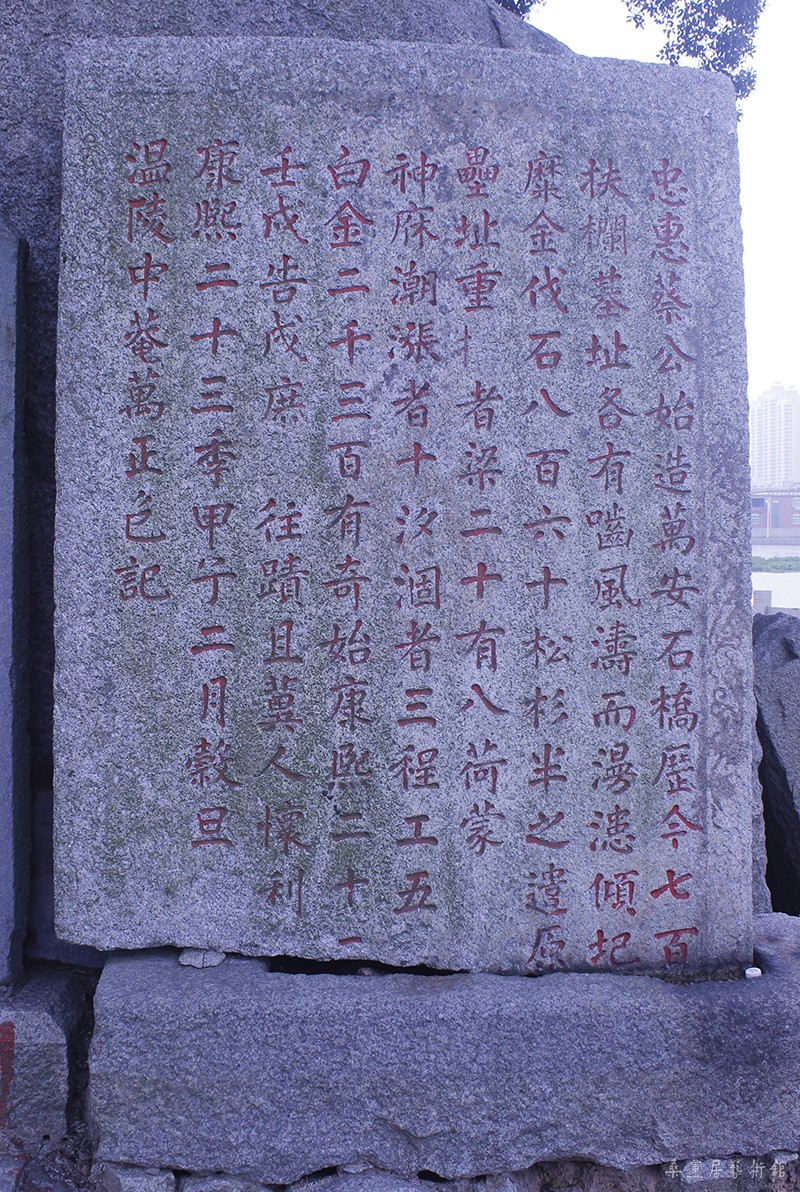 忠惠蔡公始造萬安石橋歷今七百
扶欄基址各有嚙風濤而漫漶傾圮
糜金伐石八百六十松杉半之遣原
壘址重扌者梁二十有八荷蒙
神庥潮漲者十汐涸者三程工五
白金二千三百有奇始康熙二十一
壬戌告成庶 往蹟且冀人懷利
康熙二十三季甲子二月穀旦
温陵中菴萬正色記
桑蓮居藝術館